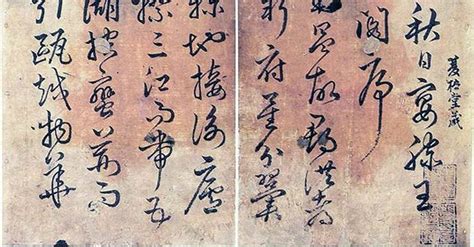 秋日宴滕王
閣序
故郡洪都
新府星分翼
軫地接衡廬
襟三江而帶五
湖控蠻荊而
引甌越物華